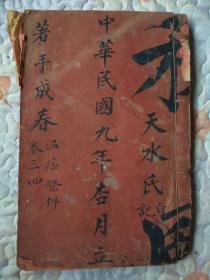 天水氏自記
中華民國九年杏月立
著手成春
温疹條件
卷三四